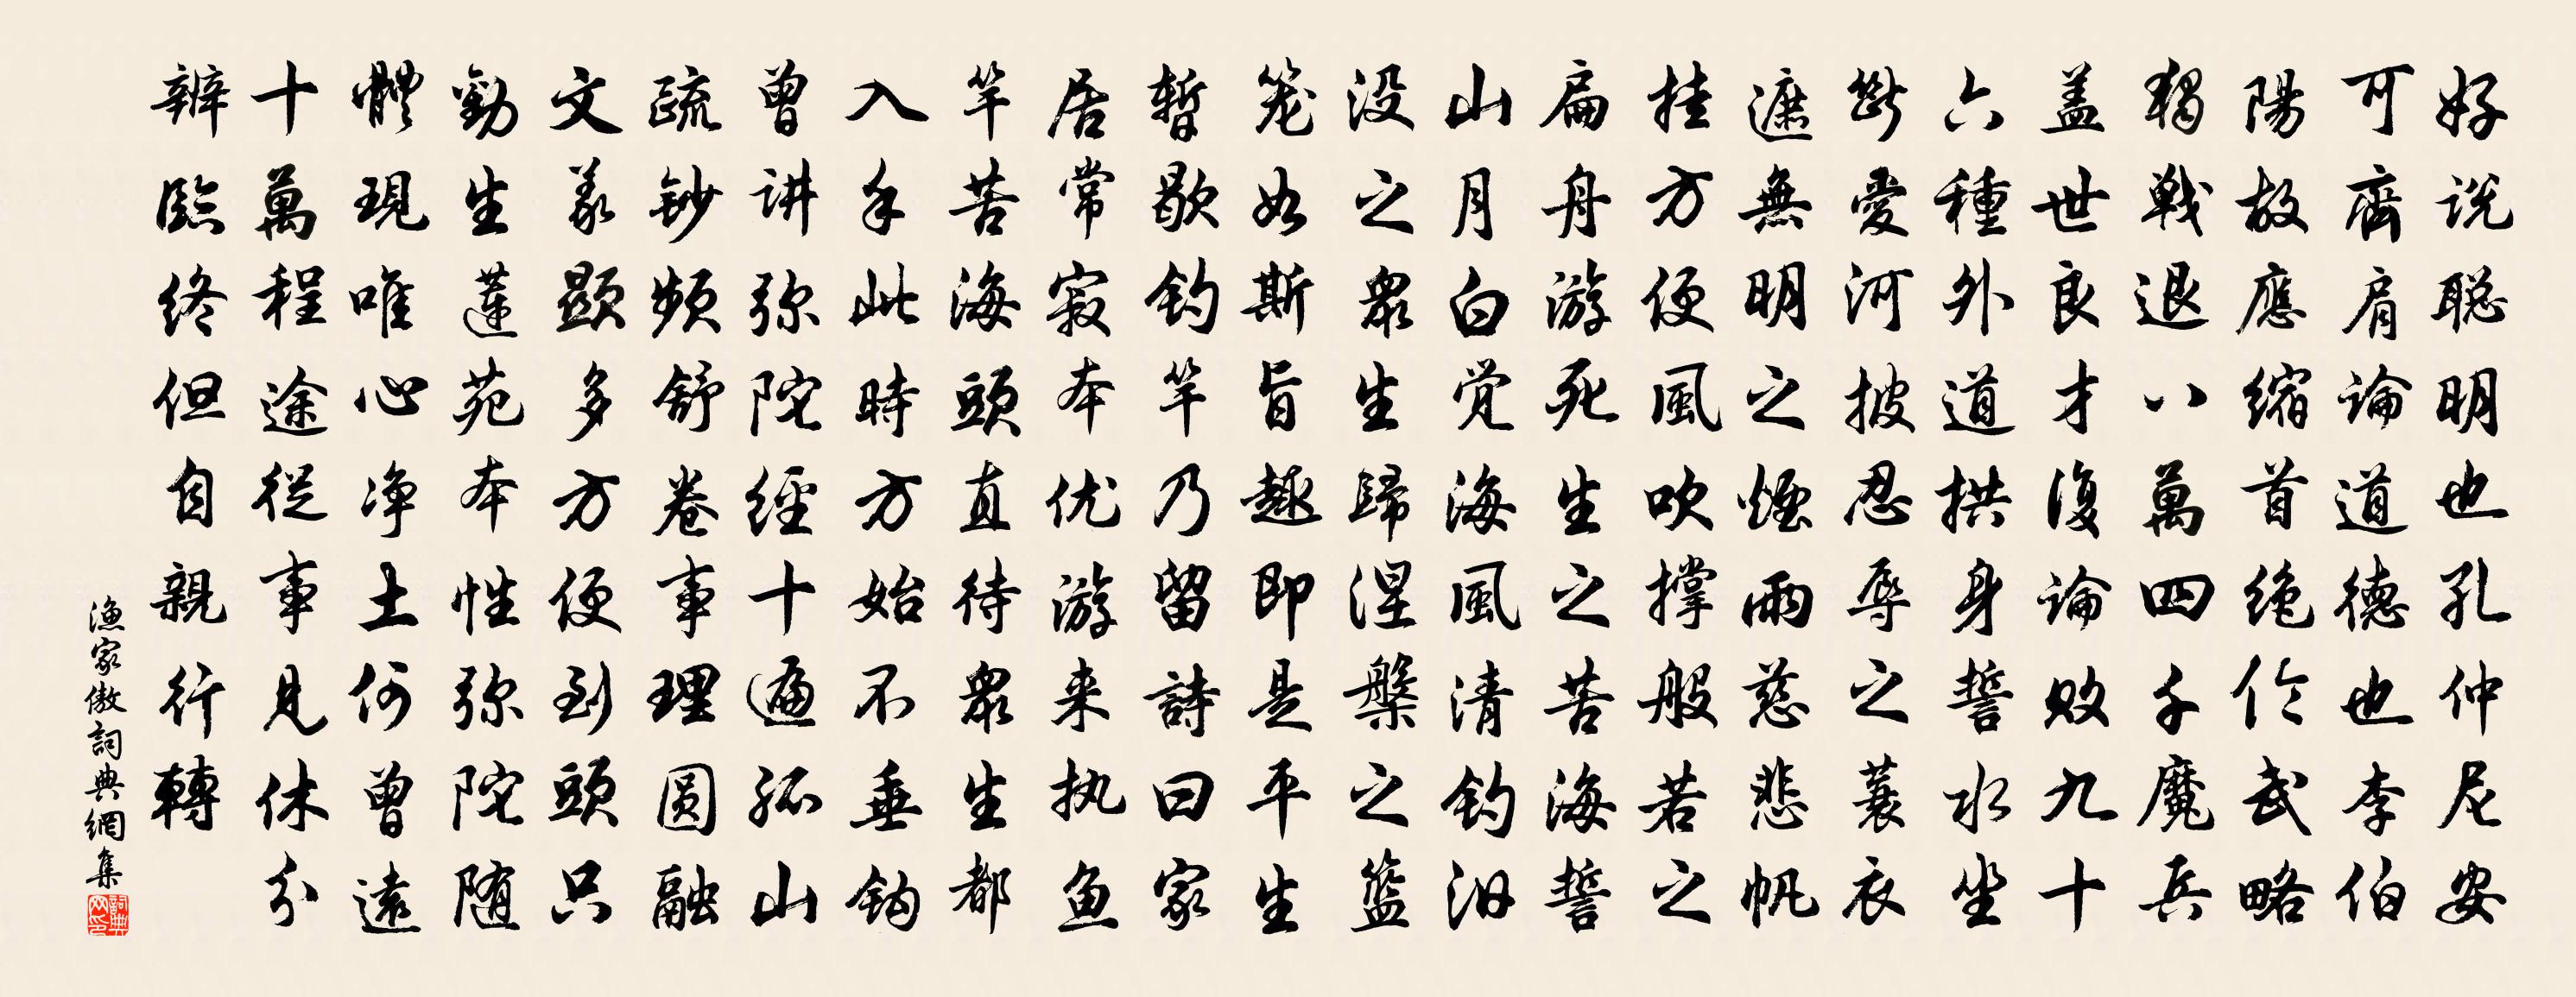 好说聪明也孔仲尼安
可齊肩論道德也李伯
陽故應缩首绝伦武略
獨戰退八萬四千魔兵
盖世良才復論败九十
六種外道拱身誓水坐
斷愛河披忍辱之蓑衣
遮無明之煙雨慈悲帆
挂方便風吹撑般若之
扁舟游死生之苦海誓
山月白觉海風清钓汨
没之眾生歸涅槃之籃
笼如斯旨趣即是平生
暫歇钓竿乃留詩曰家
居常寂本优游来执魚
竿苦海頭直待眾生都
入手此時方始不垂钩
曾讲弥陀經十遍孤山
疏钞频舒卷事理圆融
文義顯多方便到頭只
勸生蓮苑本性弥陀随
體現唯心净土何曾遠
十萬程途從事見休分
辨臨终但自親行轉
渔家傲詞典網集